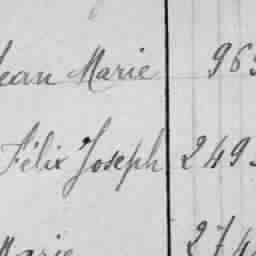 Jean Marie 965
Félix Joseph 249
Marie 274